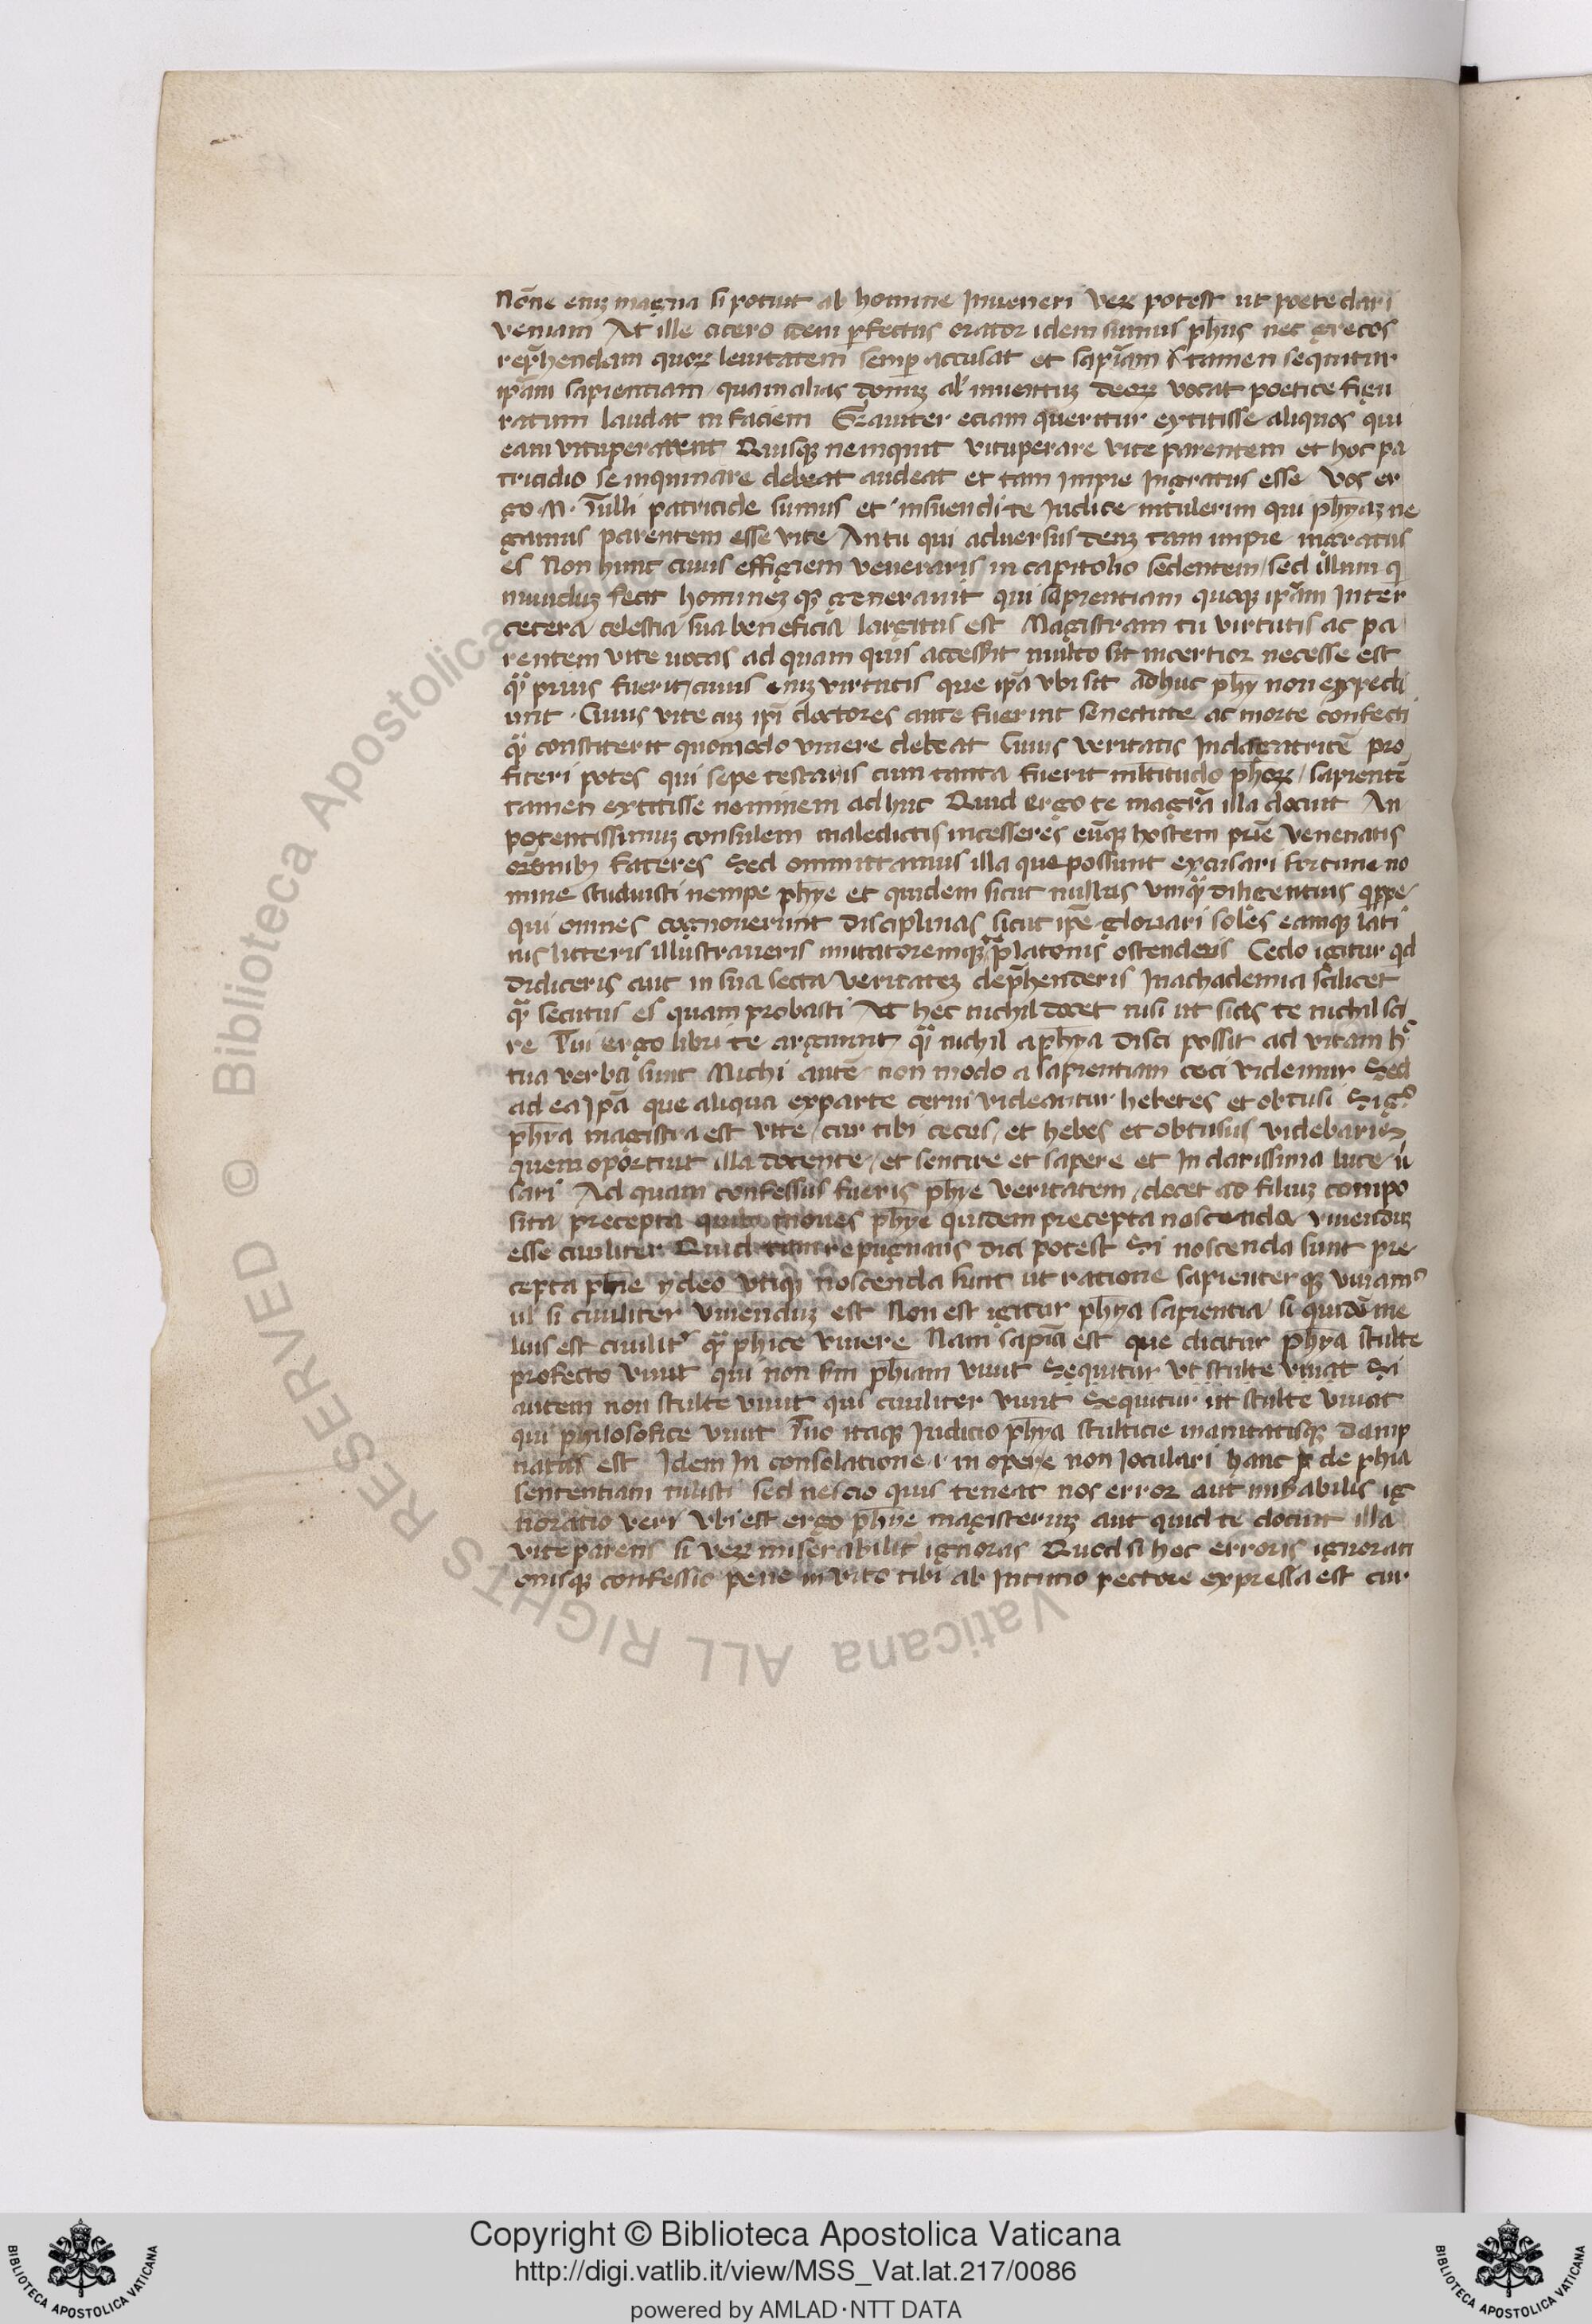 Nōne enī magna si potuit ab homine Inveneri Verꝝ potest ut poete dari
veniam At ille cicero idem ꝑfectus orator idem sumus phus nec grecos
rep̄hendam quorꝝ levitatem semꝑ accusat et sapīam tamen sequitur
ip̄am sapientiam quam alias donuꝫ al' inventuꝫ deorꝝ vocat poetice figu
ratum laudat in faciem Graviter eciam queritur extitisse aliquos qui
eam vituperarent Quisqꝫ ne inquit vituperare vite parentem et hoc pa
tricidio se inquinare debeat audeat et tam impie Ingratus esse Vos er
go .M. Tulli patricide sumus et insuendi te Iudice intulerim qui phyaꝫ ne
gamus parentem esse vite An tu qui adversus deuꝫ tam impie ingratus
es Non hunc cuius effigiem veneraris in capitolio sedentem sed illum q
munduꝫ fecit homineꝫ qꝫ generavit qui sapientiam quoqꝫ ip̄am Inter
cetera celestia sua beneficia largitus est Magistram tu virtutis ac pa
rentem vite vocas ad quam quis accesserit multo sit incertior necesse est
qͣ prius fuerit cuius enīꝫ virtutis que ip̄a ubi sit adhuc phy non expedi
unt . Cuius vite cuꝫ ip̄i doctores ante fuerint senectute ac morte confecti
qͣ constiterit quomodo vivere debeat Cuius veritatis Indagatricē pro
fiteri potes qui sepe testaris cum tanta fuerit mltitudo phorꝝ sapientē
tamen extitisse neminem adhuc Quid ergo te magr̄a illa docuit An
potentissimuꝫ consulem maledictis incesseres eūqꝫ hostem prie venenatis
orōnibꝫ fateres Sed omittamus illa que possunt excusari fortune no
mine studuisti nempe phye et quidem sicut nullus unqͣ diligentius qppe
qui omnes cognoverunt disciplinas sicut ipē gloriari soles eamqꝫ lati
nis litteris illustraveris imitatoremqꝫ platonis ostenderis Cedo igitur qd
didiceris aut in sua secta veritateꝫ dep̄henderis In achademia scilicet
qͣ secutus es quam probasti At hec nichil docet nisi ut scias te nichil sci
re Tui ergo libri te arguunt qͣ nichil a phya disci possit ad vitam h
tua verba sunt Michi autē non modo a sapientiam ceci videmur Sed
ad ea ip̄a que aliqua ex parte cerni videantur hebetes et obtusi Si gͦ
phīa magistra est vite cur tibi cecus et hebes et obtusus videbaris
quem oportuit illa docente et sentire et sapere et In clarissima luce ū
sari Ad quam confessus fueris phīe veritatem docet ad filiuꝫ compo
sita precepta quibꝫ mones phye quidem precepta noscenda vivenduꝫ
esse civiliter Quid tam repugnans dici potest Si noscenda sunt pre
cepta phīe ydeo utiqꝫ noscenda sunt ut ratione sapienter qꝫ vivamꝰ
ul si civiliter vivenduꝫ est Non est igitur phya sapientia si quidē me
lius est civilitͬ qͣ phice vivere Nam sapīa est que dicitur phya stulte
profecto vivit qui non scm phīam vivit Sequitur ut stulte vivat Si
autem non stulte vivit qui civiliter vivit Sequitur ut stulte vivat
qui philosofice vivit Tuo itaqꝫ Iudicio phya stulticie inanitatisqꝫ damp
nata est Idem In consolatione .i. in opere non Ioculari hanc de phīa
sententiam tulisti sed nescio quis teneat nos error aut misabilis ig
noratio veri Vbi est ergo phye magisteriuꝫ aut quid te docuit illa
vite parens si verꝝ miserabilitͬ ignoras Quod si hec erroris ignorati
onisqꝫ confessio pene invito tibi ab Intimo pectore expressa est cur
Copyright © Biblioteca Apostolica Vaticana
http://digi.vatlib.it/view/MSS_Vat.lat.217/0086
powered by AMLAD·NTT DATA
© Biblioteca Apostolica Vaticana ALL RIGHTS RESERVED
BIBLIOTECA APOSTOLICA VATICANA
BIBLIOTECA APOSTOLICA VATICANA